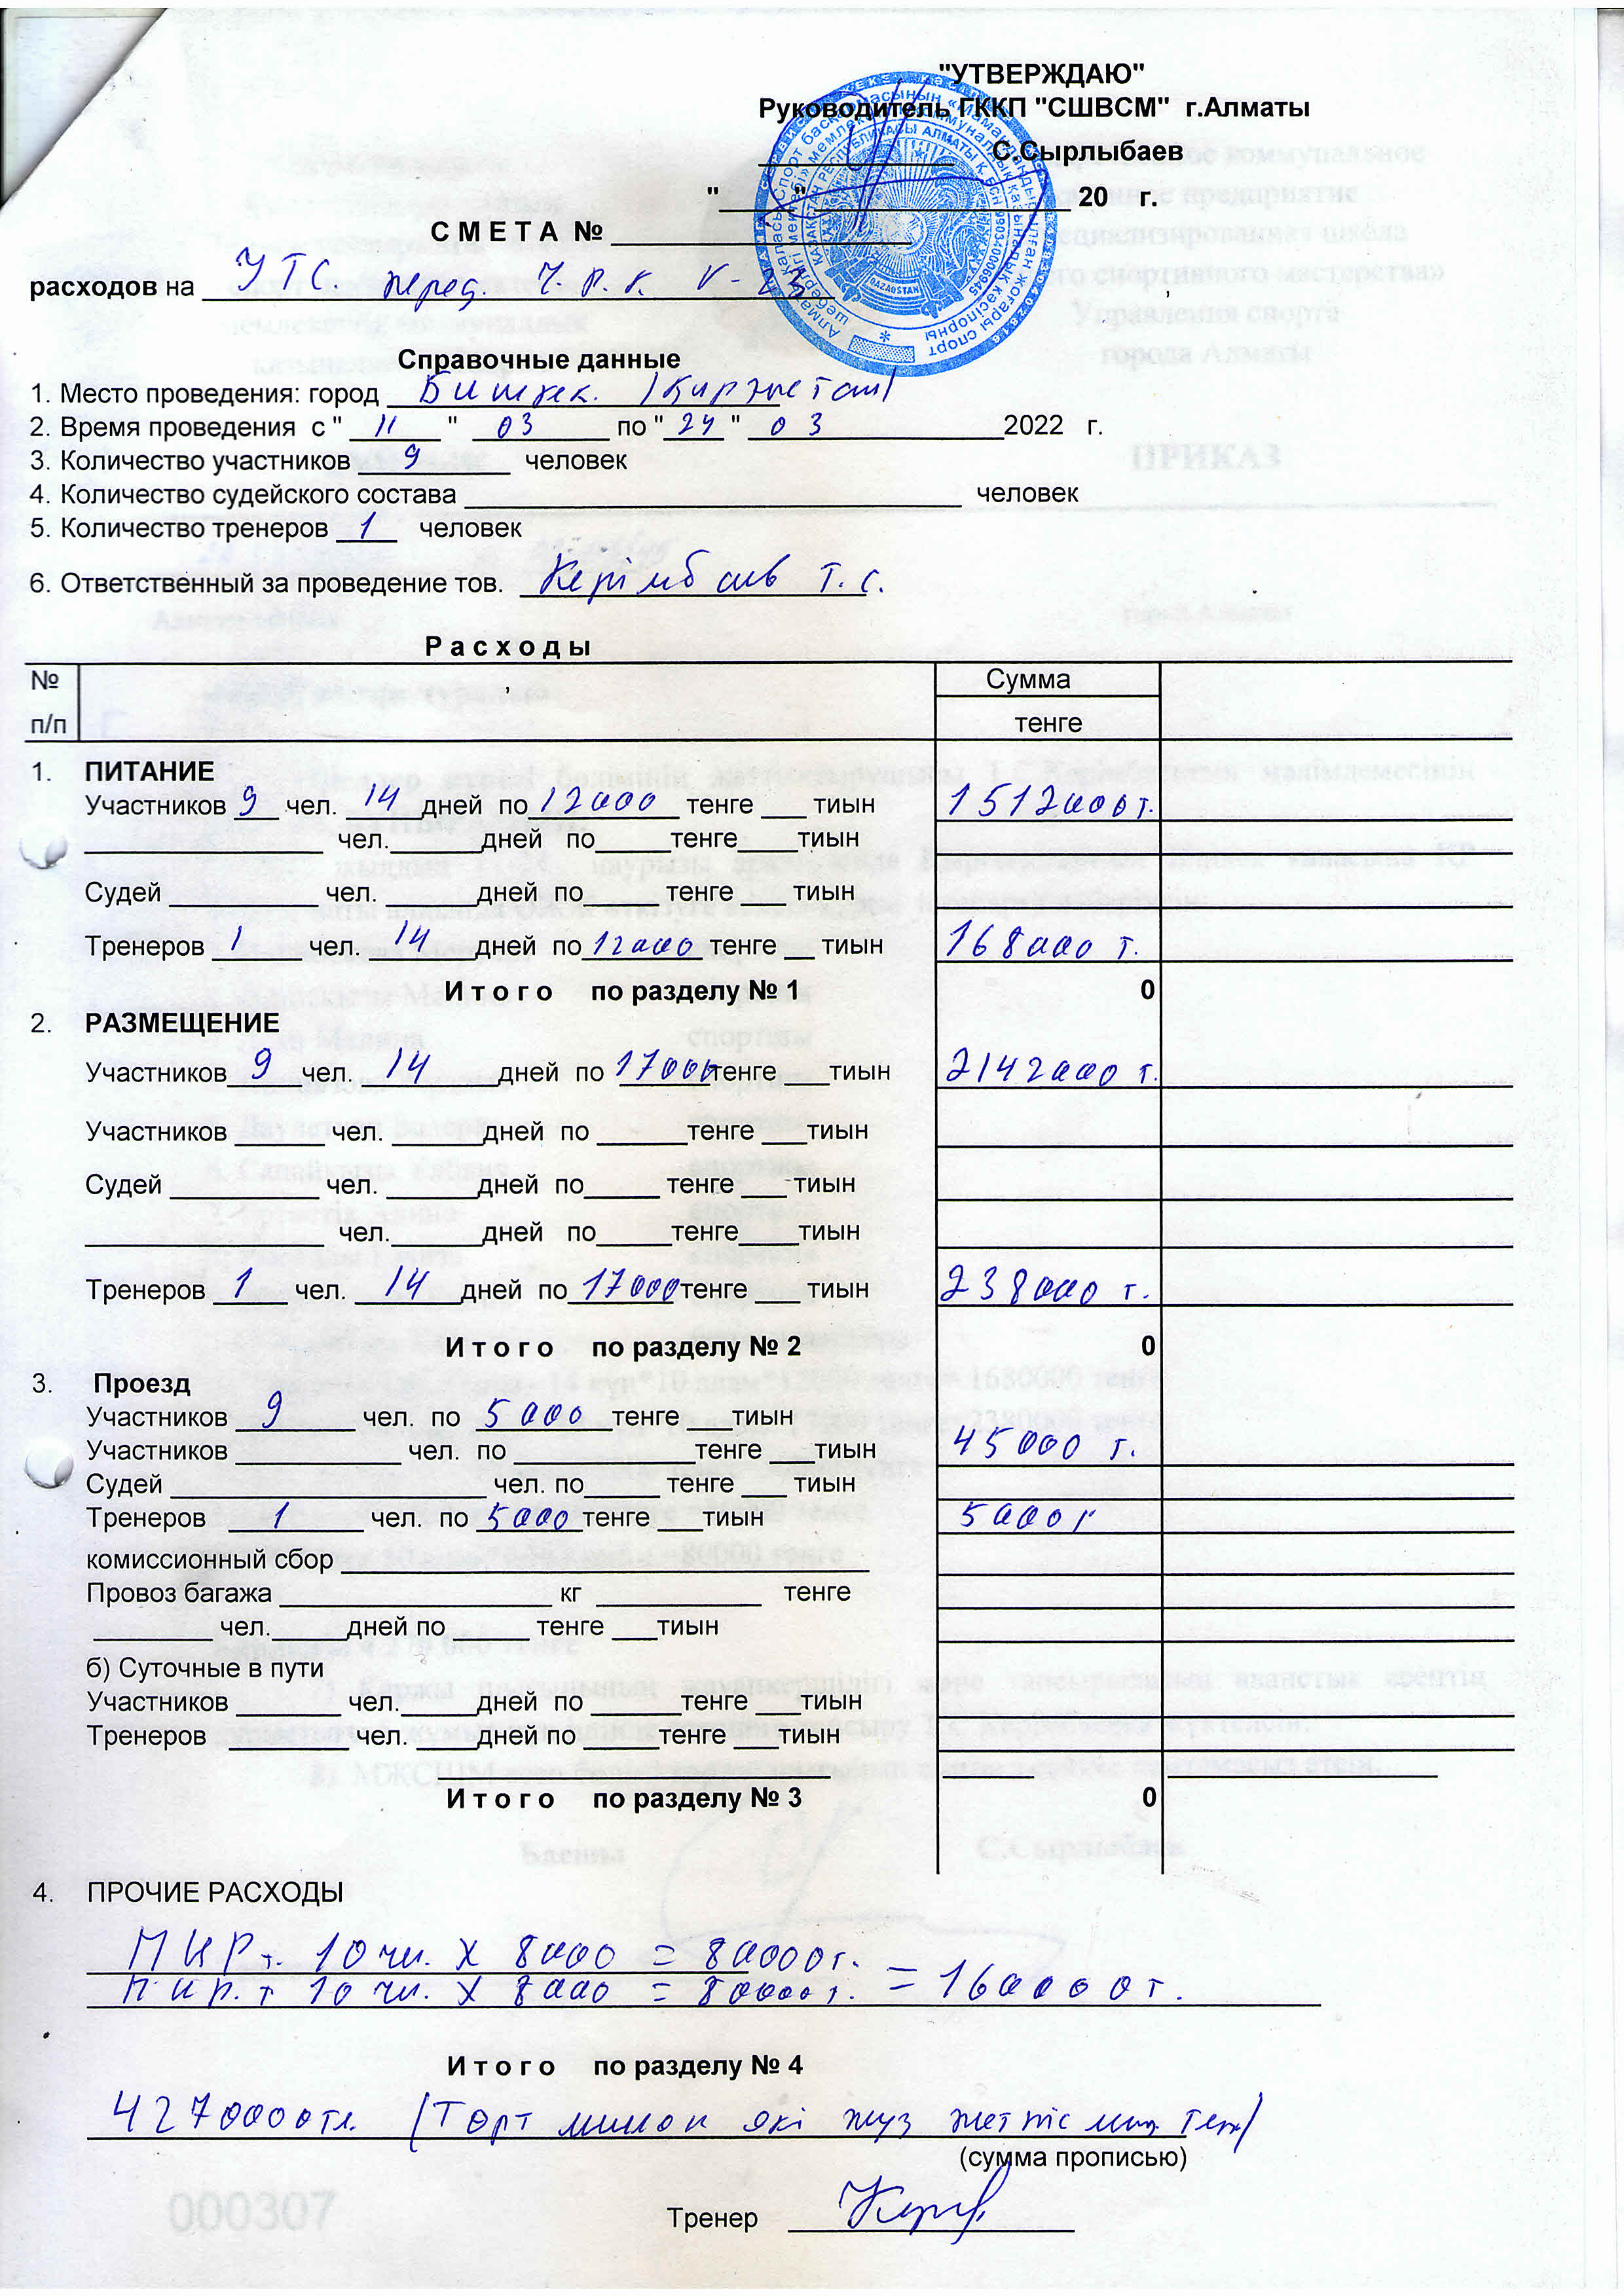 "УТВЕРЖДАЮ"
Руководитель ГККП "СШВСМ" г.Алматы
____________ С.Сырлыбаев
"____" ____________ 20 г.
С М Е Т А № ____________
расходов на УТС. перед. Ч.Р.К. V-23
Справочные данные
1. Место проведения: город Бишкек. (Киргызстан)
2. Время проведения с " 11 " 03 по " 24 " 03 2022 г.
3. Количество участников 9 человек
4. Количество судейского состава ____________ человек
5. Количество тренеров 1 человек
6. Ответственный за проведение тов. Керімбаев Т.С.
Р а с х о д ы
№ п/п Сумма
тенге
1. ПИТАНИЕ
Участников 9 чел. 14 дней по 12000 тенге ___ тиын 1512000т.
____________ чел.______дней по_____тенге____тиын
Судей ________ чел. ______дней по_____ тенге ___ тиын
Тренеров 1 чел. 14 дней по 12000 тенге __ тиын 168000 т.
И т о г о по разделу № 1 0
2. РАЗМЕЩЕНИЕ
Участников 9 чел. 14 дней по 17000 тенге ___тиын 2142000 т.
Участников ______ чел. ______дней по ______тенге ___тиын
Судей ________ чел. ______дней по_____ тенге ___ тиын
____________ чел.______дней по_____тенге____тиын
Тренеров 1 чел. 14 дней по 17000 тенге ___ тиын 238000 т.
И т о г о по разделу № 2 0
3. Проезд
Участников 9 чел. по 5000 тенге ___тиын
Участников ________ чел. по ____________тенге ___тиын 45000 т.
Судей ____________ чел. по_____ тенге ___ тиын
Тренеров 1 чел. по 5000 тенге ___тиын 5000т
комиссионный сбор ____________
Провоз багажа ____________ кг ________ тенге
________ чел._____дней по _____ тенге ___тиын
б) Суточные в пути
Участников _______ чел._____дней по ______тенге ___тиын
Тренеров ________ чел. ____дней по _____тенге ___тиын
И т о г о по разделу № 3 0
4. ПРОЧИЕ РАСХОДЫ
ПЦР т. 10 чл. х 8000 = 80000т.
ПЦР. т 10 чл. х 8000 = 80000т. = 160000т.
И т о г о по разделу № 4
4270000тг. (Төрт милон екі жуз жетпіс мың тен)
(сумма прописью)
Тренер ____________
000307